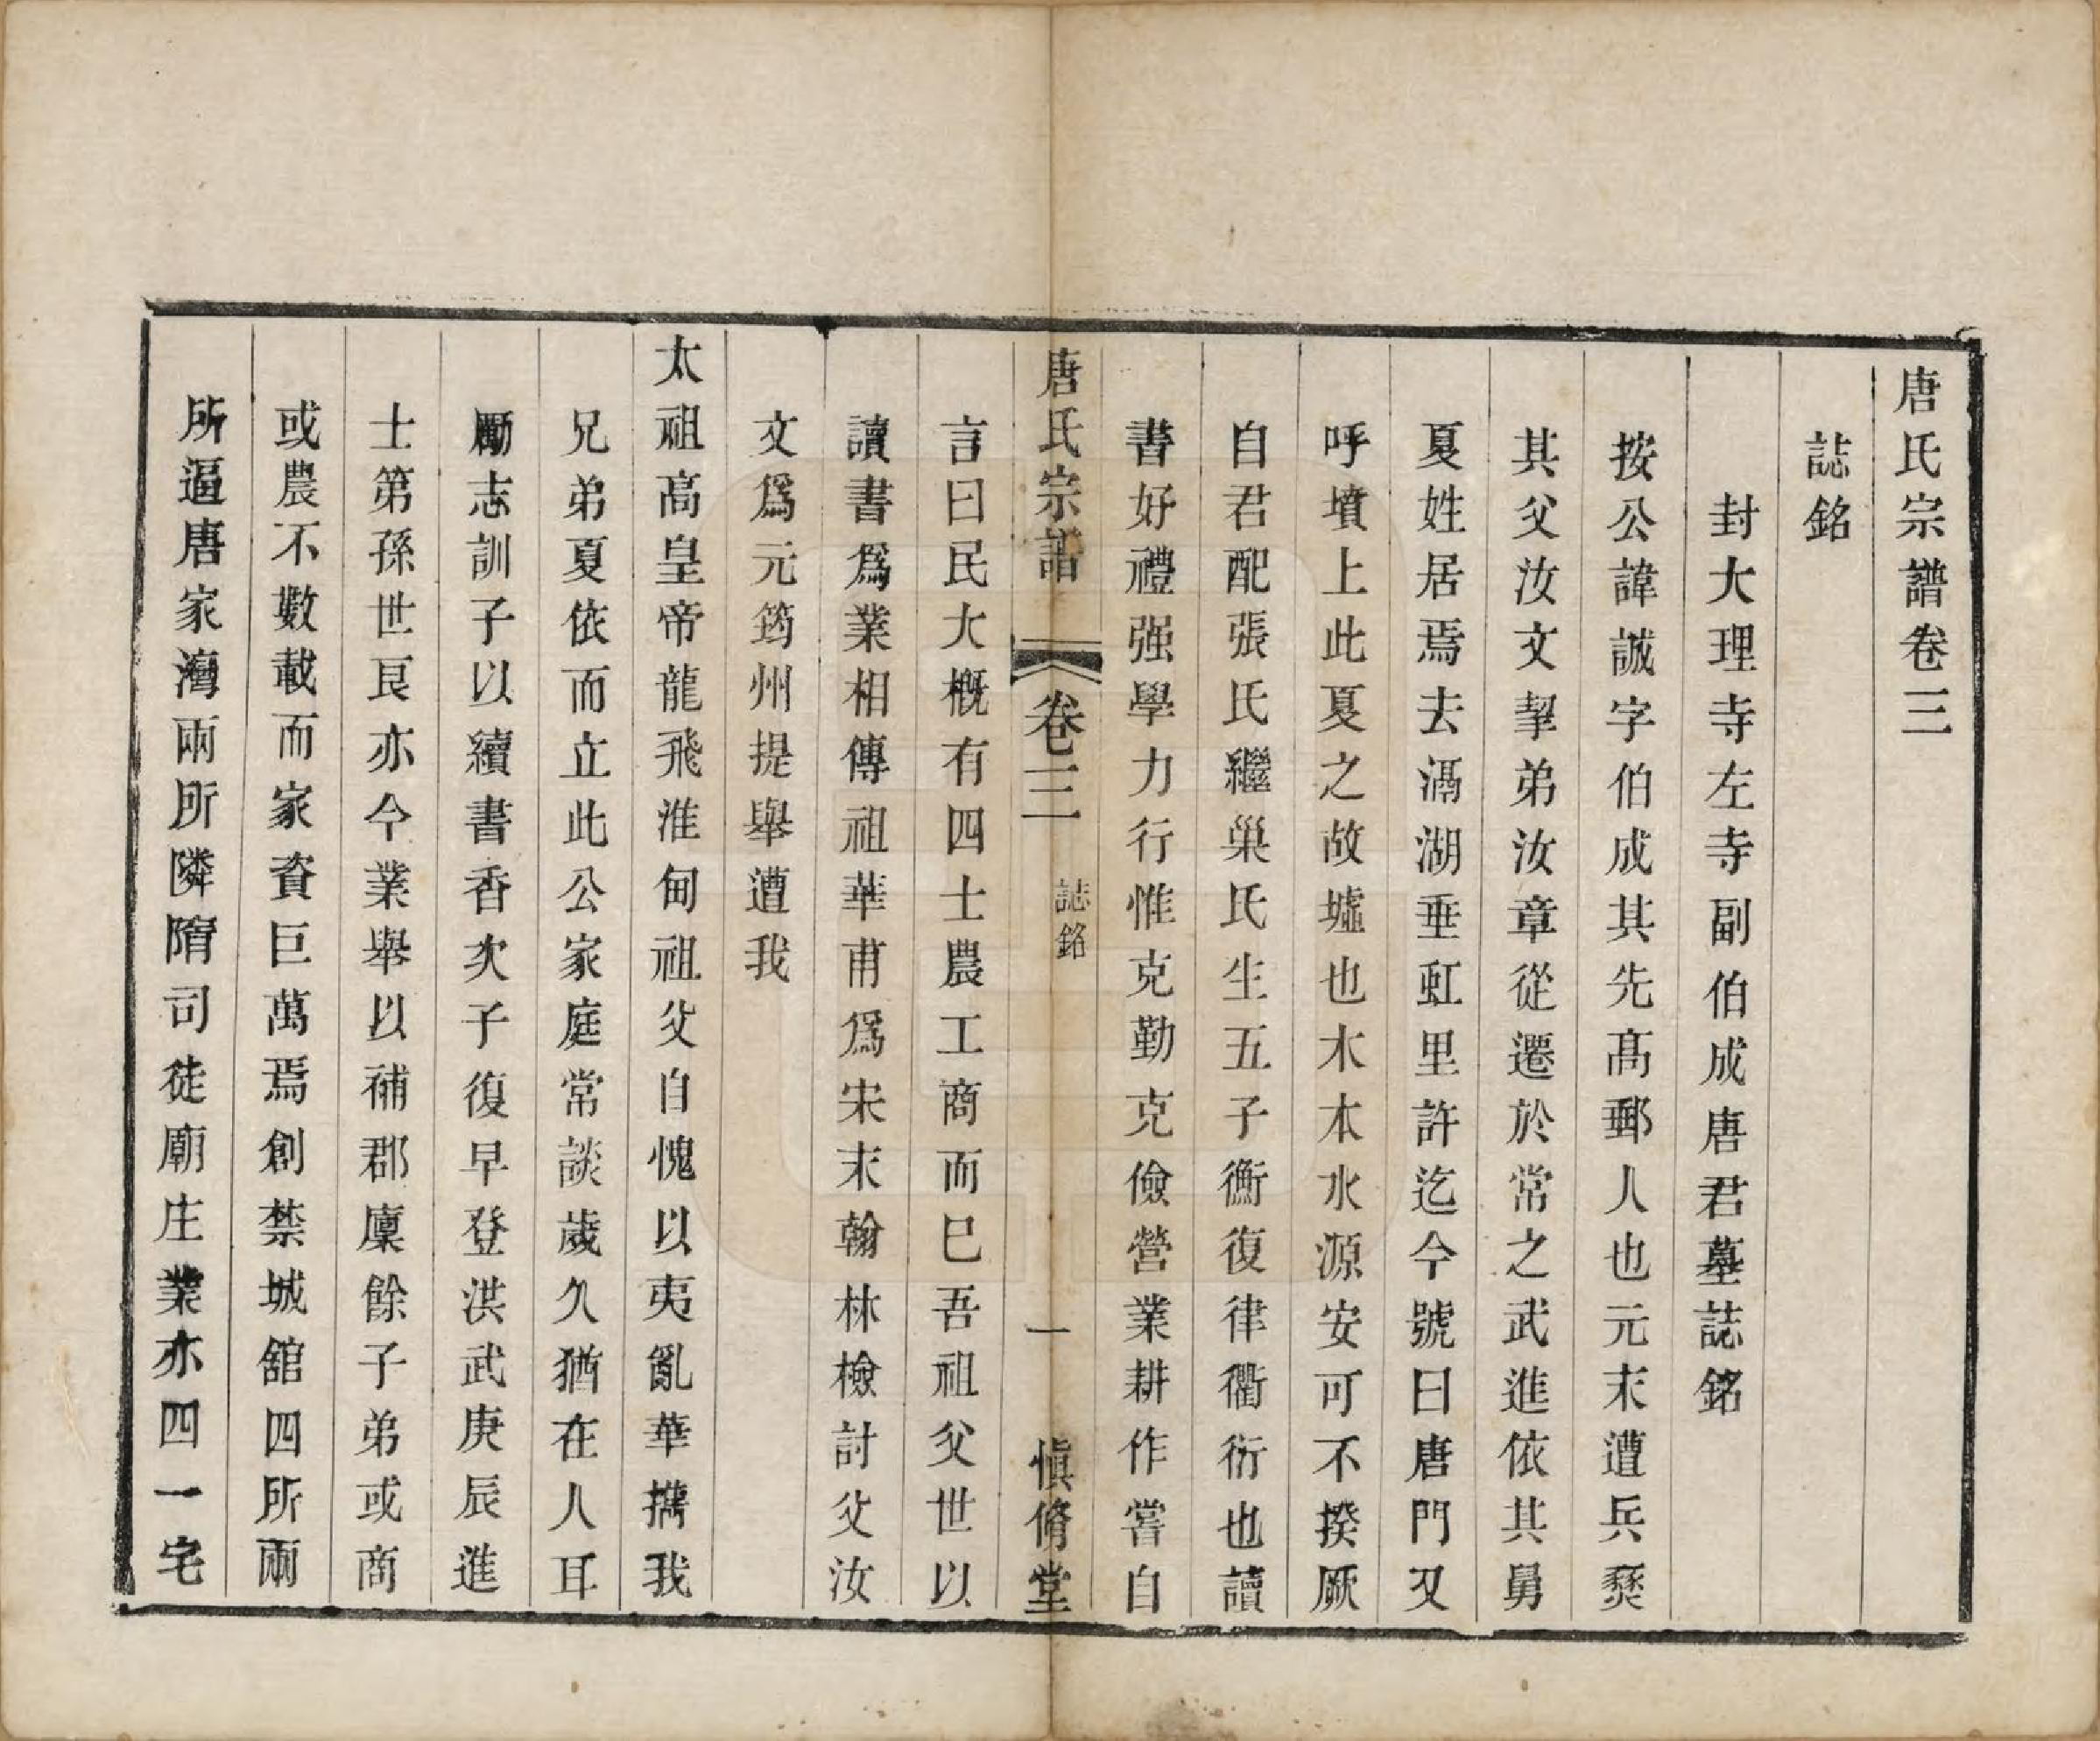 唐氏宗譜卷三
誌銘
封大理寺左寺副伯成唐君墓誌銘
按公諱誠字伯成其先髙郵人也元末遭兵燹
其父汝文挈弟汝章從遷於常之武進依其舅
夏姓居焉去滆湖垂虹里許迄今號曰唐門又
呼墳上此夏之故墟也木本水源安可不揆厥
自君配張氏繼巢氏生五子衡復律衢衍也讀
書好禮强學力行惟克勤克儉營業耕作嘗自
唐氏宗譜 卷三 誌銘 一 慎脩堂
言曰民大概有四士農工商而巳吾祖父世以
讀書爲業相傳祖華甫爲宋末翰林檢討父汝
文爲元筠州提舉遭我
太祖高皇帝龍飛淮甸祖父自愧以夷亂華擕我
兄弟夏依而立此公家庭常談歲久猶在人耳
勵志訓子以續書香次子復早登洪武庚辰進
士第孫世良亦今業舉以補郡廩餘子弟或商
或農不數載而家資巨萬焉創禁城舘四所兩
所逼唐家灣兩所隣隋司徒廟庄業亦四一宅